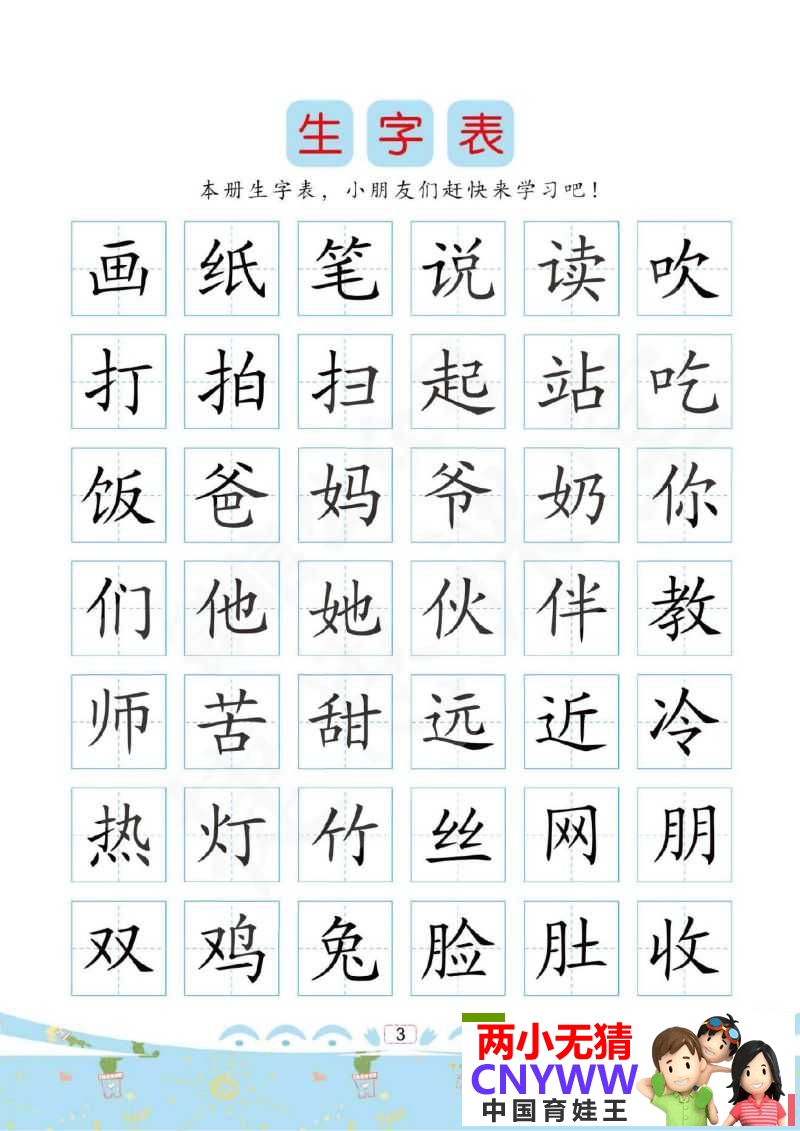 生字表
本册生字表，小朋友们赶快来学习吧！
画 纸 笔 说 读 吹
打 拍 扫 起 站 吃
饭 爸 妈 爷 奶 你
们 他 她 伙 伴 教
师 苦 甜 远 近 冷
热 灯 竹 丝 网 朋
双 鸡 兔 脸 肚 收
3
两小无猜
CNYWW
中国育娃王